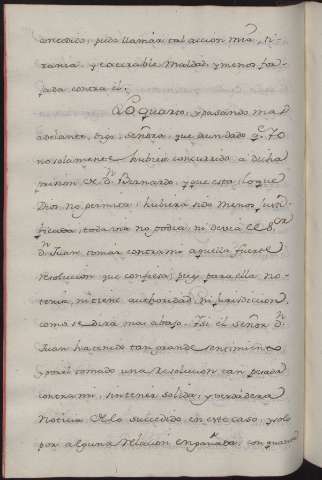 puedo llamar tal accion mia, ti-
rania y execrable maldad, y menos for
jada contra el.
Lo quarto, y pasando mas
adelante, digo, señora, que aun dado q.e Yo
no solamente hubiera concurrido a dicha
prision de D.n Bernardo, y que esta (lo que
Dios no permita) hubiera sido menos justi-
ficada, toda via no podia, ni devia el S.or
D.n Juan tomár contra mi aquella fuerte
resolucion que confiesa; pues para ella no
tenia, ni tiene authoridad, ni jurisdiccion,
como se dirá mas abajo. Y si el señor D.n
Juan haciendo tan grande sentimiento
por el tomado una resolucion tan pesada
contra mi, sin tener solida, y verdadera
noticia de lo succedido en este caso, y solo
por alguna relacion engañada, con quanta